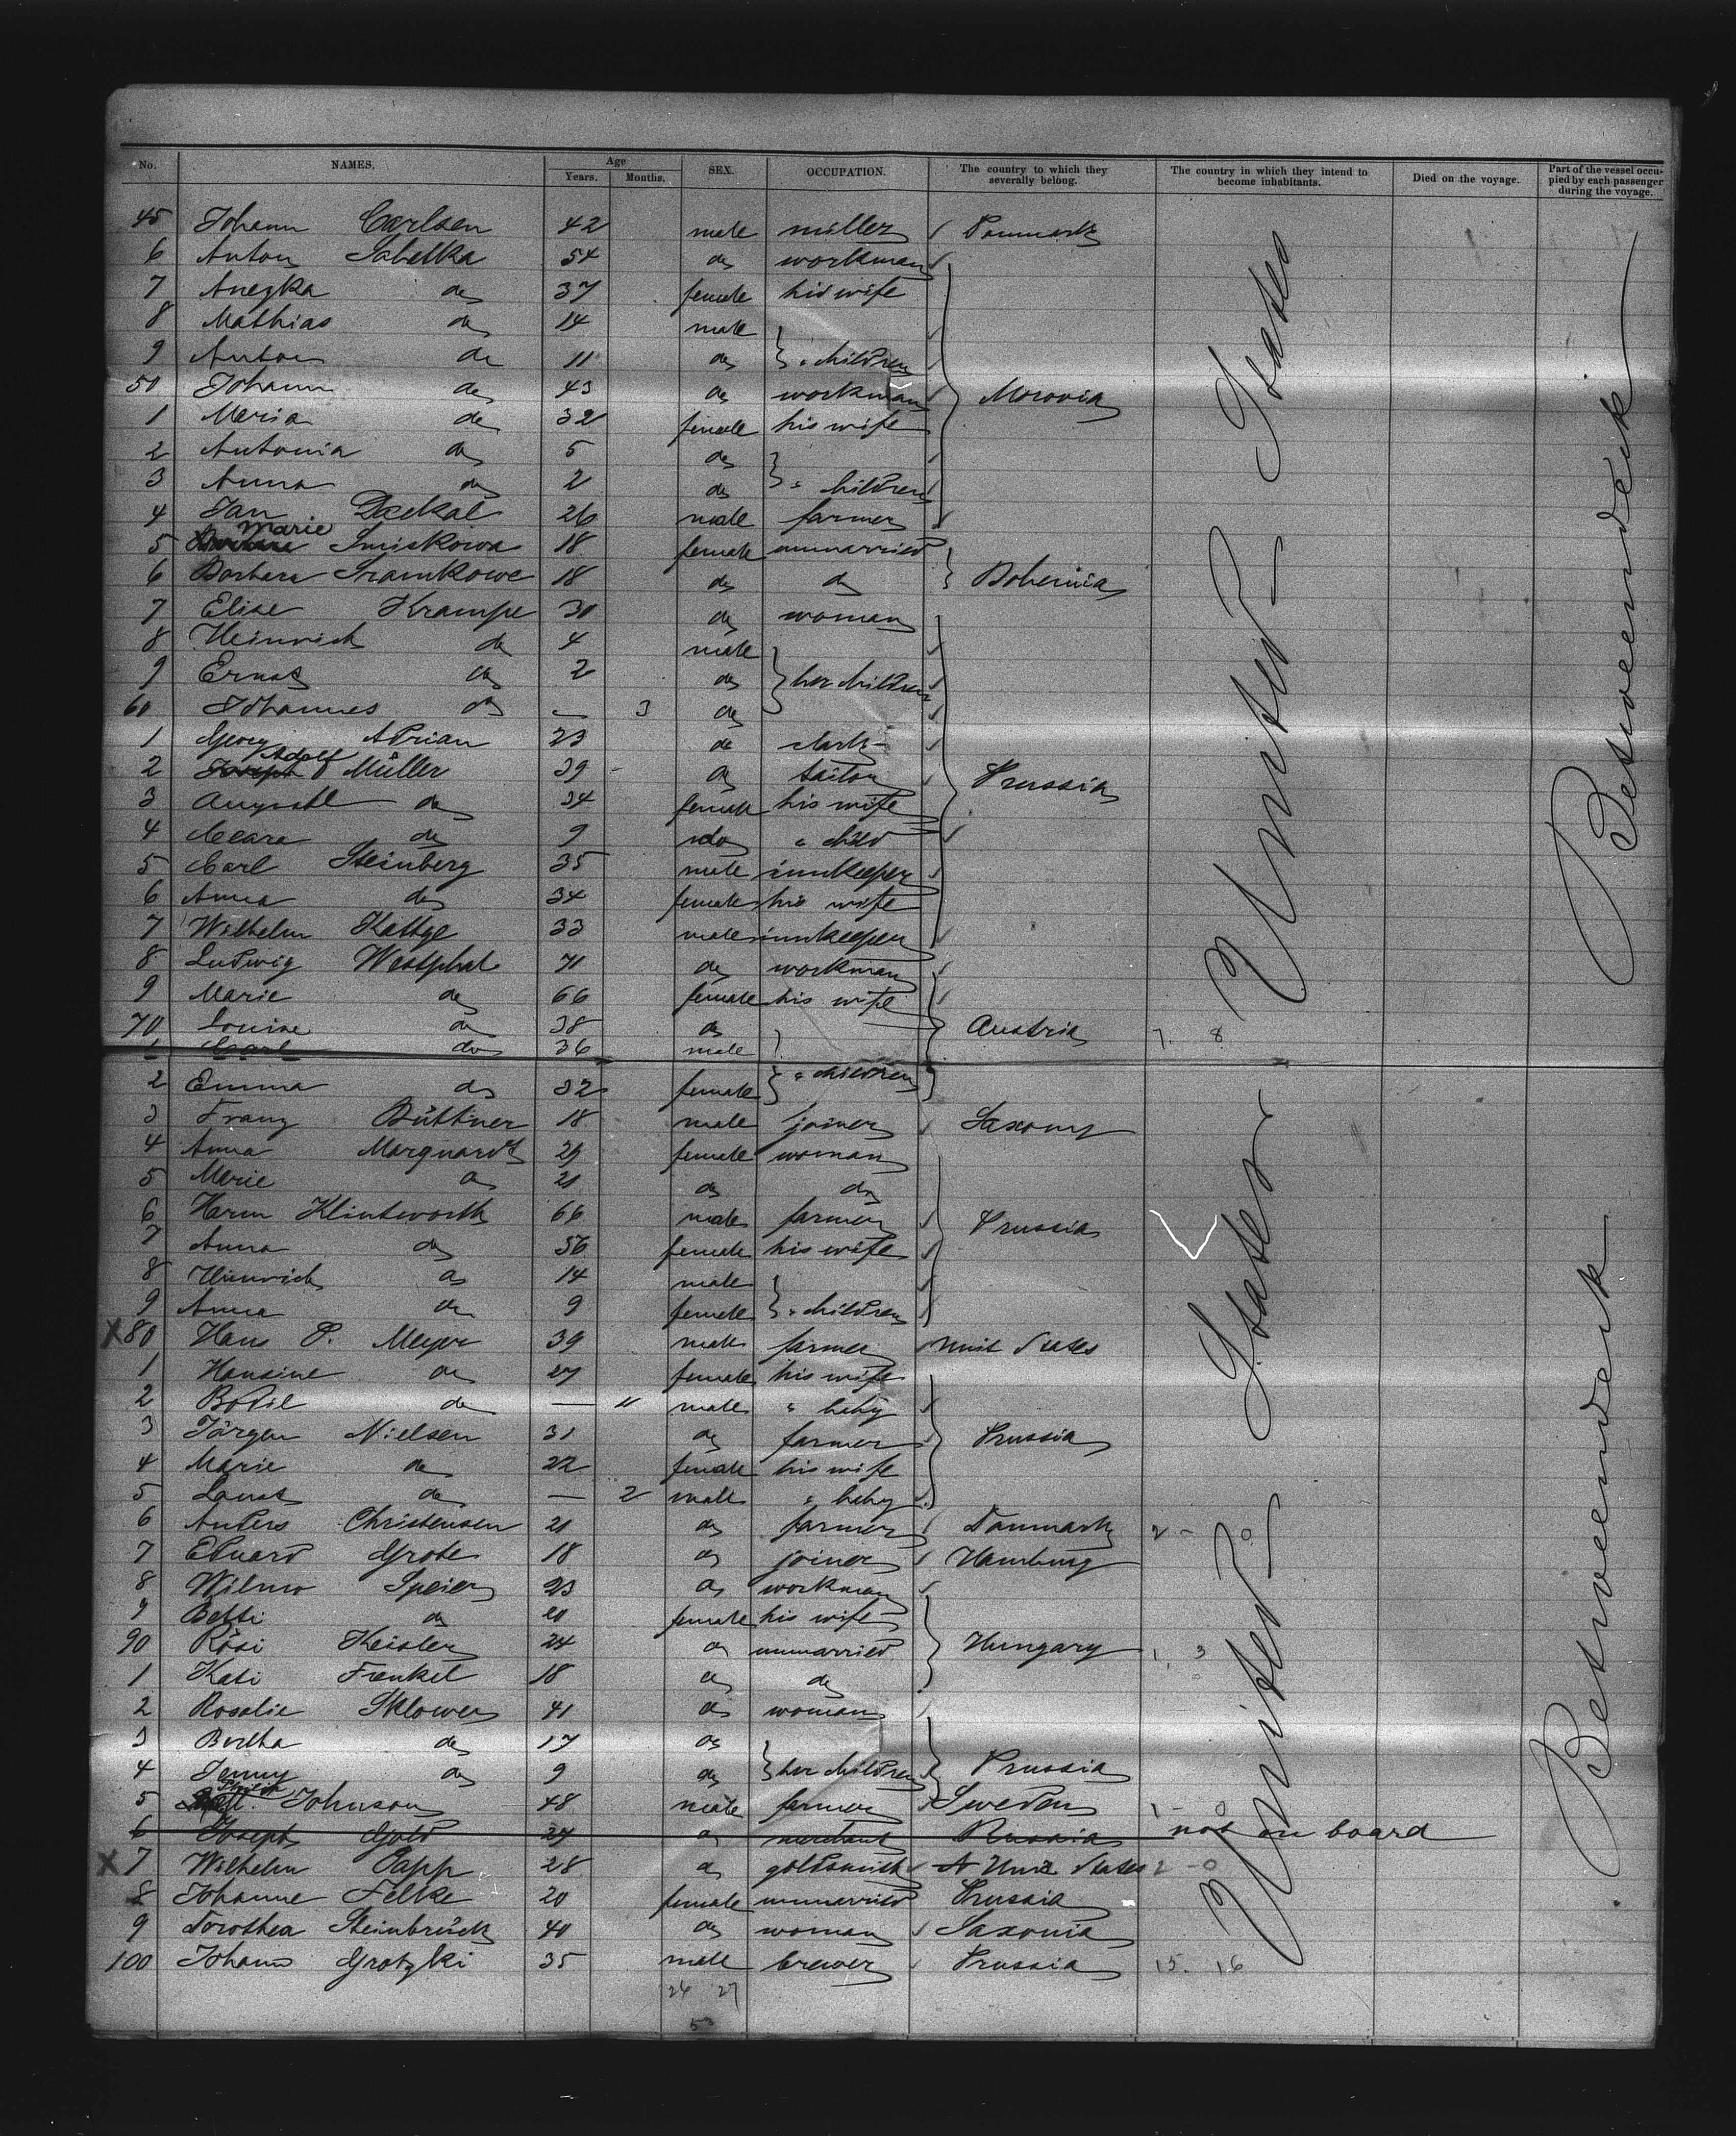 No. NAMES. Age Years. Months. SEX. OCCUPATION. The country to which they severally belong. The country in which they intend to become inhabitants. Died on the voyage. Part of the vessel occupied by each passenger during the voyage.
45 Johann Carlsen 42 male miller Danmark
6 Anton Sabelka 54 do workman
7 Anezka do 37 female his wife
8 Mathias do 14 male
9 Anton do 11 do " children
50 Johann do 43 do workman Moravia
1 Maria do 32 female his wife
2 Antonia do 5 do
3 Anna do 2 do " children
4 Jan 26 male farmer
5 Marie Smiskowa 18 female unmarried
6 Barbara Sramkowe 18 do do Bohemia
7 Elise Krampe 30 do woman
8 Heinrich do 4 male
9 Ernst do 2 do her children
60 Johannes do — 3 do
1 Georg Adrian 23 do clark
2 Joseph Adolf Müller 39 do tailor Prussia
3 Auguste do 34 female his wife
4 Clara do 9 do " child
5 Carl Steinberg 35 male innkeeper
6 Anna do 34 female his wife
7 Wilhelm Kattge 33 male innkeeper
8 Ludwig Westphal 71 do workman
9 Marie do 66 female his wife
70 Louise do 38 do Austria 7. 8
1 Carl do 36 male
2 Emma do 32 female " children
3 Franz Büttner 18 male joiner Saxony
4 Anna Marquardt 29 female woman
5 Marie do 21 do do
6 Harm Klintworth 66 male farmer Prussia
7 Anna do 56 female his wife
8 Hinrich do 14 male
9 Anna do 9 female " children
X 80 Hans P. Meyer 39 male farmer Unit States
1 Hansine do 27 female his wife
2 Bodil do — 11 male " baby
3 Jörgen Nielsen 31 do farmer Prussia
4 Marie do 22 female his wife
5 Laust do — 2 male " baby
6 Anders Christensen 21 do farmer Danmark 2 - 0
7 Eduard Grote 18 do joiner Hamburg
8 Wilmo Speier 23 do workman
9 Betti do 20 female his wife
90 Rösi Keisler 24 do unmarried Hungary 1. 3
1 Kati Fænkel 18 do do
2 Rosalie Sklower 41 do woman
3 Bertha do 17 do
4 Jenny do 9 do her children Prussia
5 Johnson 48 male farmer Sweden 1 - 0
6 Joseph Gold 24 do merchant Russia not on board
X 7 Wilhelm Papp 28 do goldsmith Unit States 2 - 0
8 Johanne Felke 20 female unmarried Prussia
9 Dorothea Steinbrück 40 do woman Saxonia
100 Johann Grotzki 35 male brewer Prussia 15. 16
26 27
53
United States
United States
Betweendeck
Betweendeck